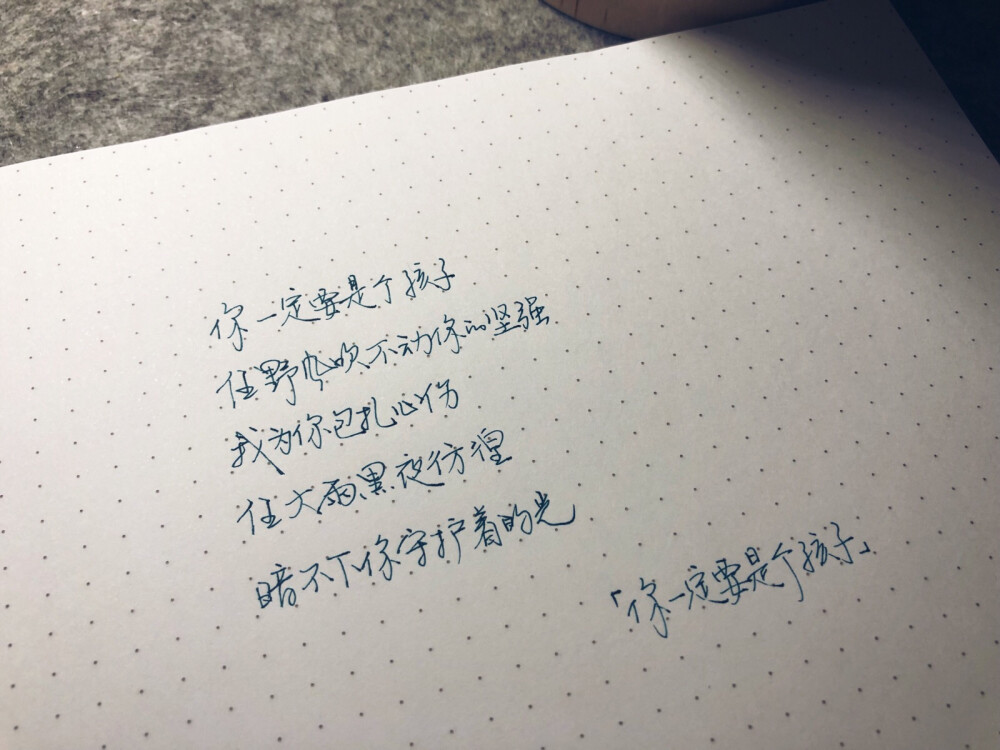 你一定要是个孩子
任野风吹不动你的坚强
我为你包扎心伤
任大雨黑夜彷徨
暗不下你守护着的光
「你一定要是个孩子」